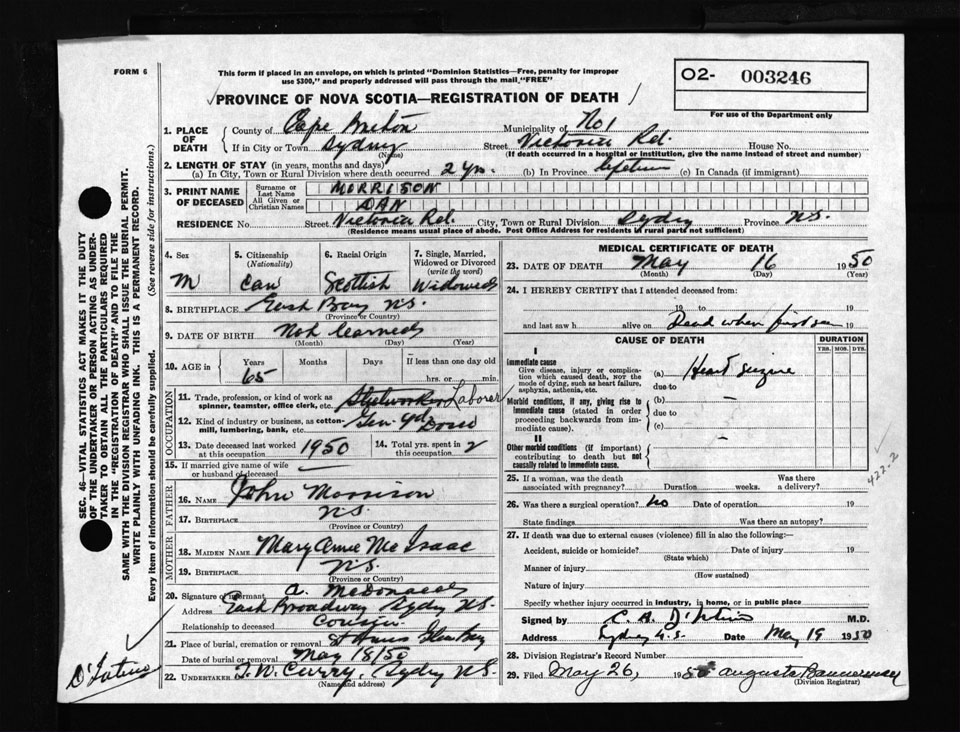 FORM 6
This form if placed in an envelope, on which is printed "Dominion Statistics—Free, penalty for improper
use $300," and properly addressed will pass through the mail, "FREE"
PROVINCE OF NOVA SCOTIA—REGISTRATION OF DEATH
O2- 003246
For use of the Department only
1. PLACE OF DEATH
County of Cape Breton Municipality of No 1
If in City or Town Sydney Street Victoria Rd. House No.
(Name) (If death occurred in a hospital or institution, give the name instead of street and number)
2. LENGTH OF STAY (in years, months and days)
(a) In City, Town or Rural Division where death occurred 2 yrs. (b) In Province lifetime (c) In Canada (if immigrant)
3. PRINT NAME OF DECEASED
Surname or Last Name MORRISON
All Given or Christian Names DAN
RESIDENCE No. Street Victoria Rd. City, Town or Rural Division Sydney Province N.S.
(Residence means usual place of abode. Post Office Address for residents in rural parts not sufficient)
4. Sex M
5. Citizenship (Nationality) Can
6. Racial Origin Scottish
7. Single, Married, Widowed or Divorced (write the word) Widowed
8. BIRTHPLACE East Bay N.S.
(Province or Country)
9. DATE OF BIRTH Not learned
(Month) (Day) (Year)
10. AGE in Years 65 Months Days If less than one day old
hrs. or min.
OCCUPATION
11. Trade, profession, or kind of work as spinner, teamster, office clerk, etc. Steelworker Laborer
12. Kind of industry or business, as cotton-mill, lumbering, bank, etc. Gen. Yd
13. Date deceased last worked at this occupation 1950
14. Total yrs. spent in 2
15. If married give name of wife or husband of deceased
FATHER
16. NAME John Morrison
17. BIRTHPLACE N.S.
(Province or Country)
MOTHER
18. MAIDEN NAME Mary Anne McIsaac
19. BIRTHPLACE N.S.
(Province or Country)
20. Signature of informant A. McDonald
Address East Broadway Sydney N.S.
Relationship to deceased Cousin
21. Place of burial, cremation or removal St Annes Glace Bay
Date of burial or removal May 18/50
22. UNDERTAKER T. W. Curry, Sydney N.S.
(Name and address)
MEDICAL CERTIFICATE OF DEATH
23. DATE OF DEATH May 16 1950
(Month) (Day) (Year)
24. I HEREBY CERTIFY that I attended deceased from:
19 to 19
and last saw h alive on Dead when first seen 19
CAUSE OF DEATH DURATION
YRS. MOS. DYS.
I
Immediate cause
Give disease, injury or complication which caused death, NOT the mode of dying, such as heart failure, asphyxia, asthenia, etc.
(a) Heart seizure
due to
Morbid conditions, if any, giving rise to immediate cause (stated in order proceeding backwards from immediate cause).
(b) —
due to
(c)
II
Other morbid conditions (if important) contributing to death but not causally related to immediate cause.
—
422.2
25. If a woman, was the death associated with pregnancy? Duration weeks. Was there a delivery?
26. Was there a surgical operation? No Date of operation 19
State findings Was there an autopsy?
27. If death was due to external causes (violence) fill in also the following:—
Accident, suicide or homicide? Date of injury 19
(State which)
Manner of injury
(How sustained)
Nature of injury
Specify whether injury occurred in industry, in home, or in public place
Signed by M.D.
Address Sydney N.S. Date May 19 1950
28. Division Registrar's Record Number
29. Filed May 26, 1950 Augusta Bannerman
(Division Registrar)
SEC. 46—VITAL STATISTICS ACT MAKES IT THE DUTY
OF THE UNDERTAKER OR PERSON ACTING AS UNDER-
TAKER TO OBTAIN ALL THE PARTICULARS REQUIRED
IN THE "REGISTRATION OF DEATH" AND TO FILE THE
SAME WITH THE DIVISION REGISTRAR WHO SHALL ISSUE THE BURIAL PERMIT.
WRITE PLAINLY WITH UNFADING INK. THIS IS A PERMANENT RECORD.
Every item of information should be carefully supplied. (See reverse side for instructions.)